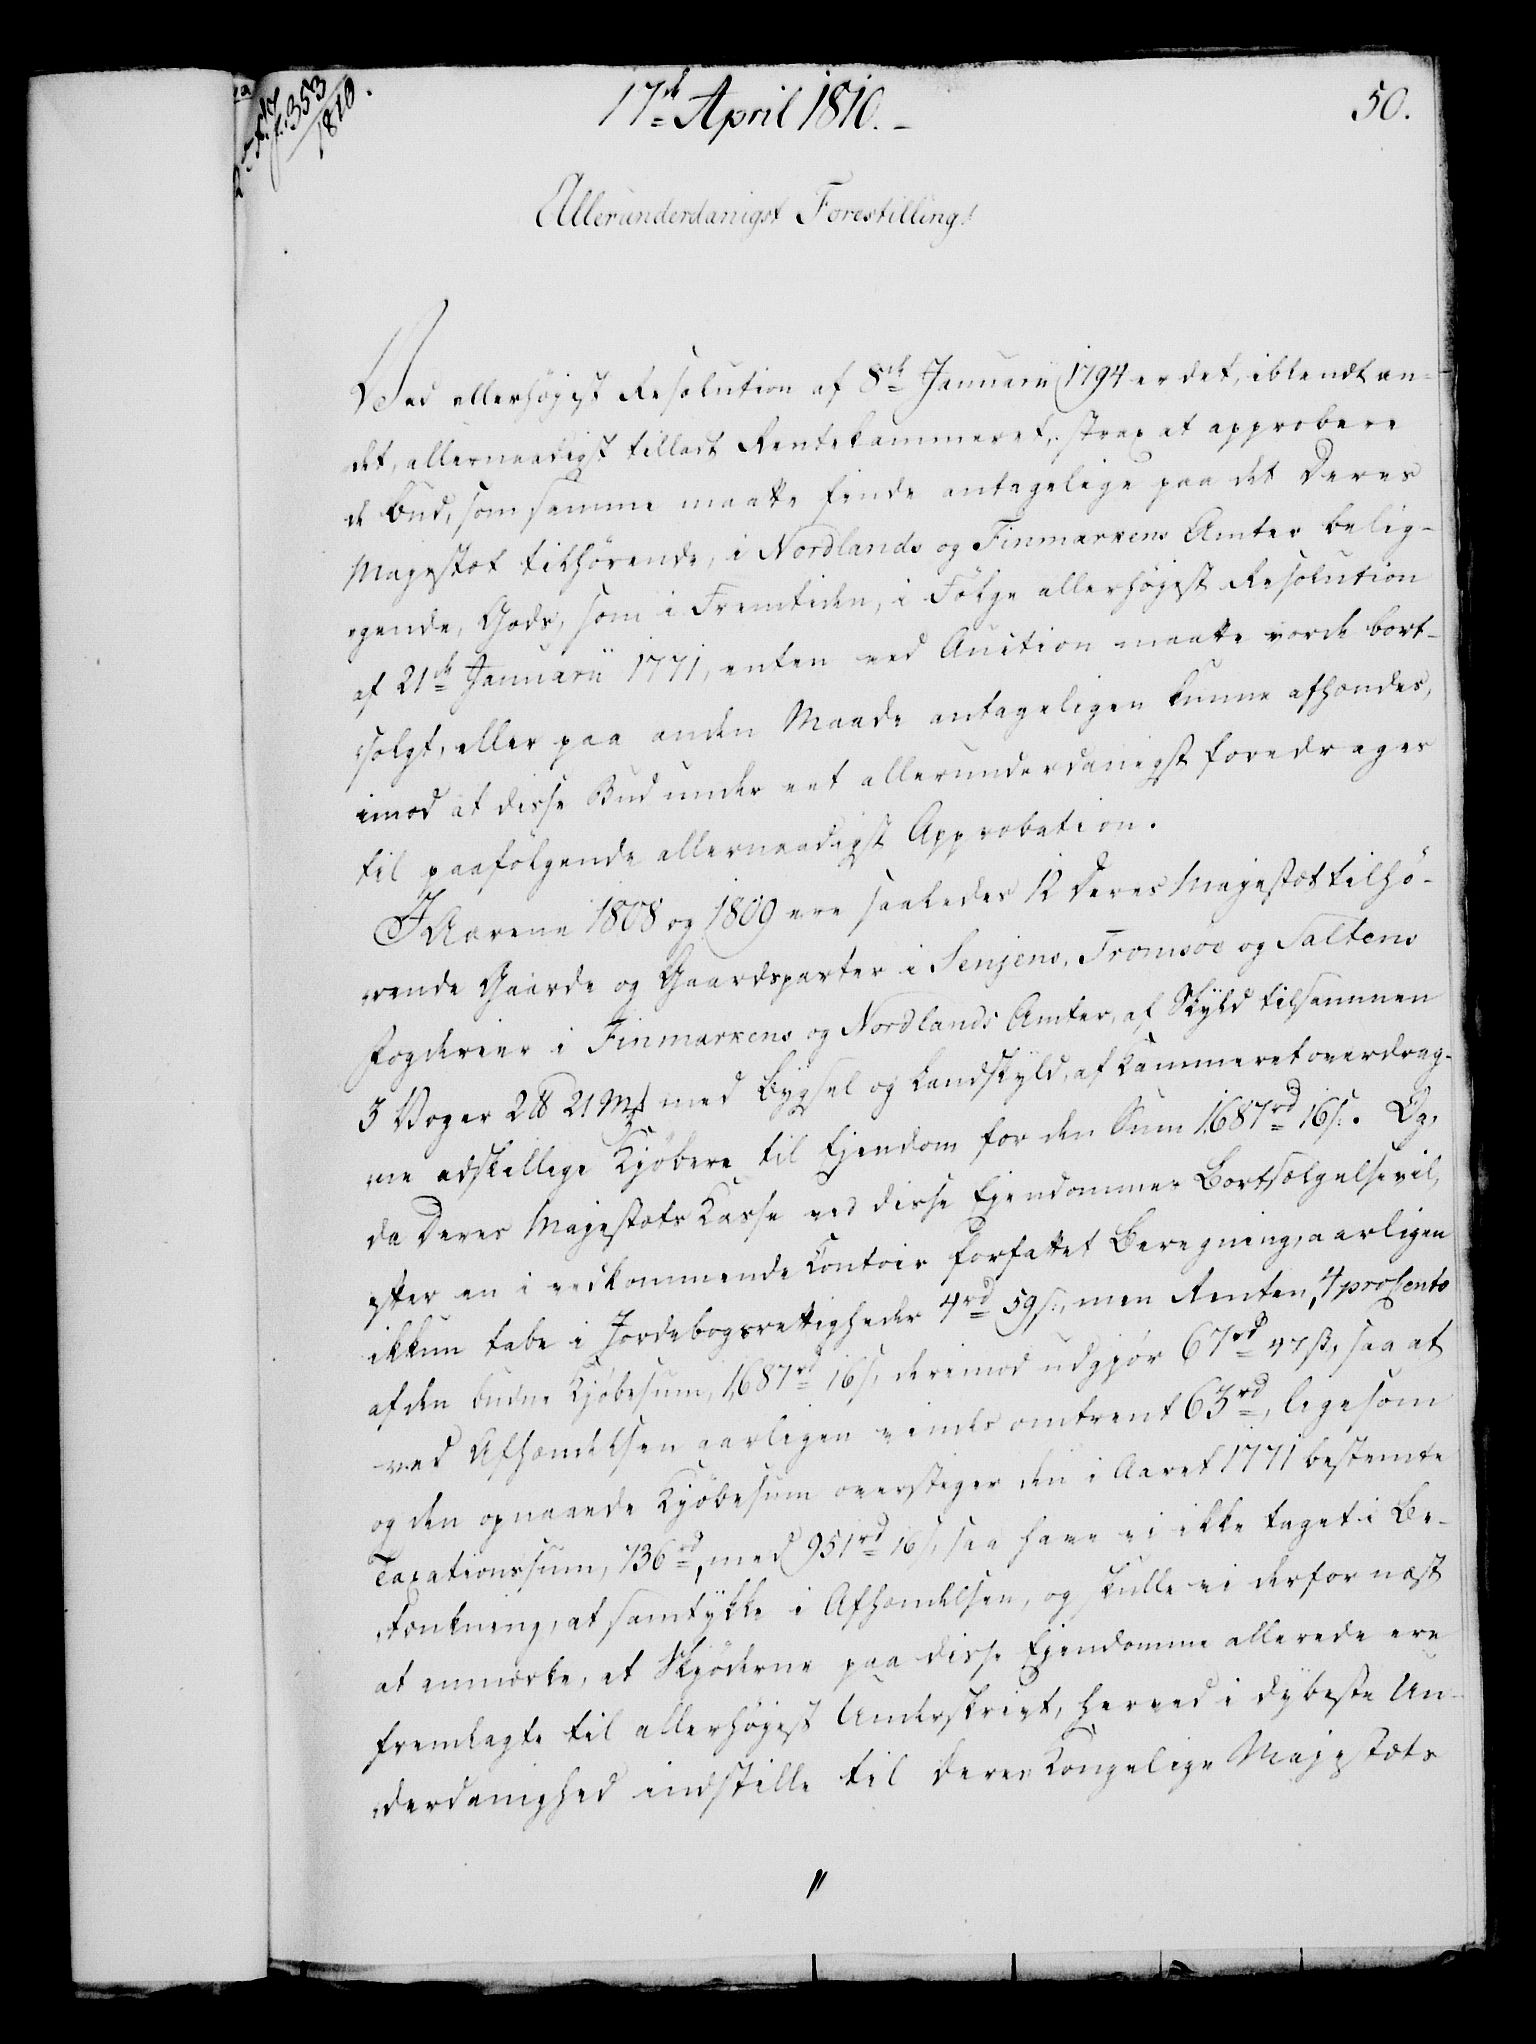 f. 353
1810.
17de April 1810.
50.
Allerunderdanigst Forestilling!
Ved allerhøyest Resolution af 8de Januarii 1794 er det, iblandt an-
det, allernaadigst tilladt Rentekammeret, strax at approbere
de Bud, som samme maatte finde antagelige paa det Deres
Majestæt tilhørende, i Nordlands og Finmarkens Amter belig-
gende, Gods, som i Fremtiden, i Følge allerhøyest Resolution
af 21de Januarii 1771, enten ved Auction maatte vorde bort-
solgt, eller paa anden Maade antageligen kunne afhændes,
imod at disse Bud under eet allerunderdanigst foredrages
til paafølgende allernaadigst Approbation.
I Aarene 1808 og 1809 ere saaledes 12 Deres Majestæt tilhø-
rende Gaarde og Gaardsparter i Senjens, Tromsøe og Saltens
Fogderier i Finmarkens og Nordlands Amter, af Skyld tilsammen
3 Voger 2 ℔ 21 Mk med Bygsel og Landskyld, af Kammeret overdrag-
ne adskillige Kjøbere til Ejendom for den Sum 1687rd 16s. Og,
da Deres Majestæts Kasse ved disse Ejendommes Bortsælgelse vil,
efter en i vedkommende Contoir forfattet Beregning, aarligen
ikkun tabe i Jordebogsrettigheder 4rd 59s., men Renten, 4 procento
af den budne Kjøbesum, 1687rd 16s, derimod udgjør 67rd 47s, saa at
ved Afhændelsen aarligen vindes omtrent 63rd, ligesom
og den opnaaede Kjøbesum overstiger den i Aaret 1771 bestemte
Taxationssum, 736rd, med 951rd 16s, saa have vi ikke taget i Be-
tænkning, at samtykke i Afhændelsen, og skulle vi derfor næst
at anmærke, at Skjøderne paa disse Ejendomme allerede ere
fremlagte til allerhøyest Underskrivt, herved i dybeste Un-
derdanighed indstille til Deres Kongelige Majestæts